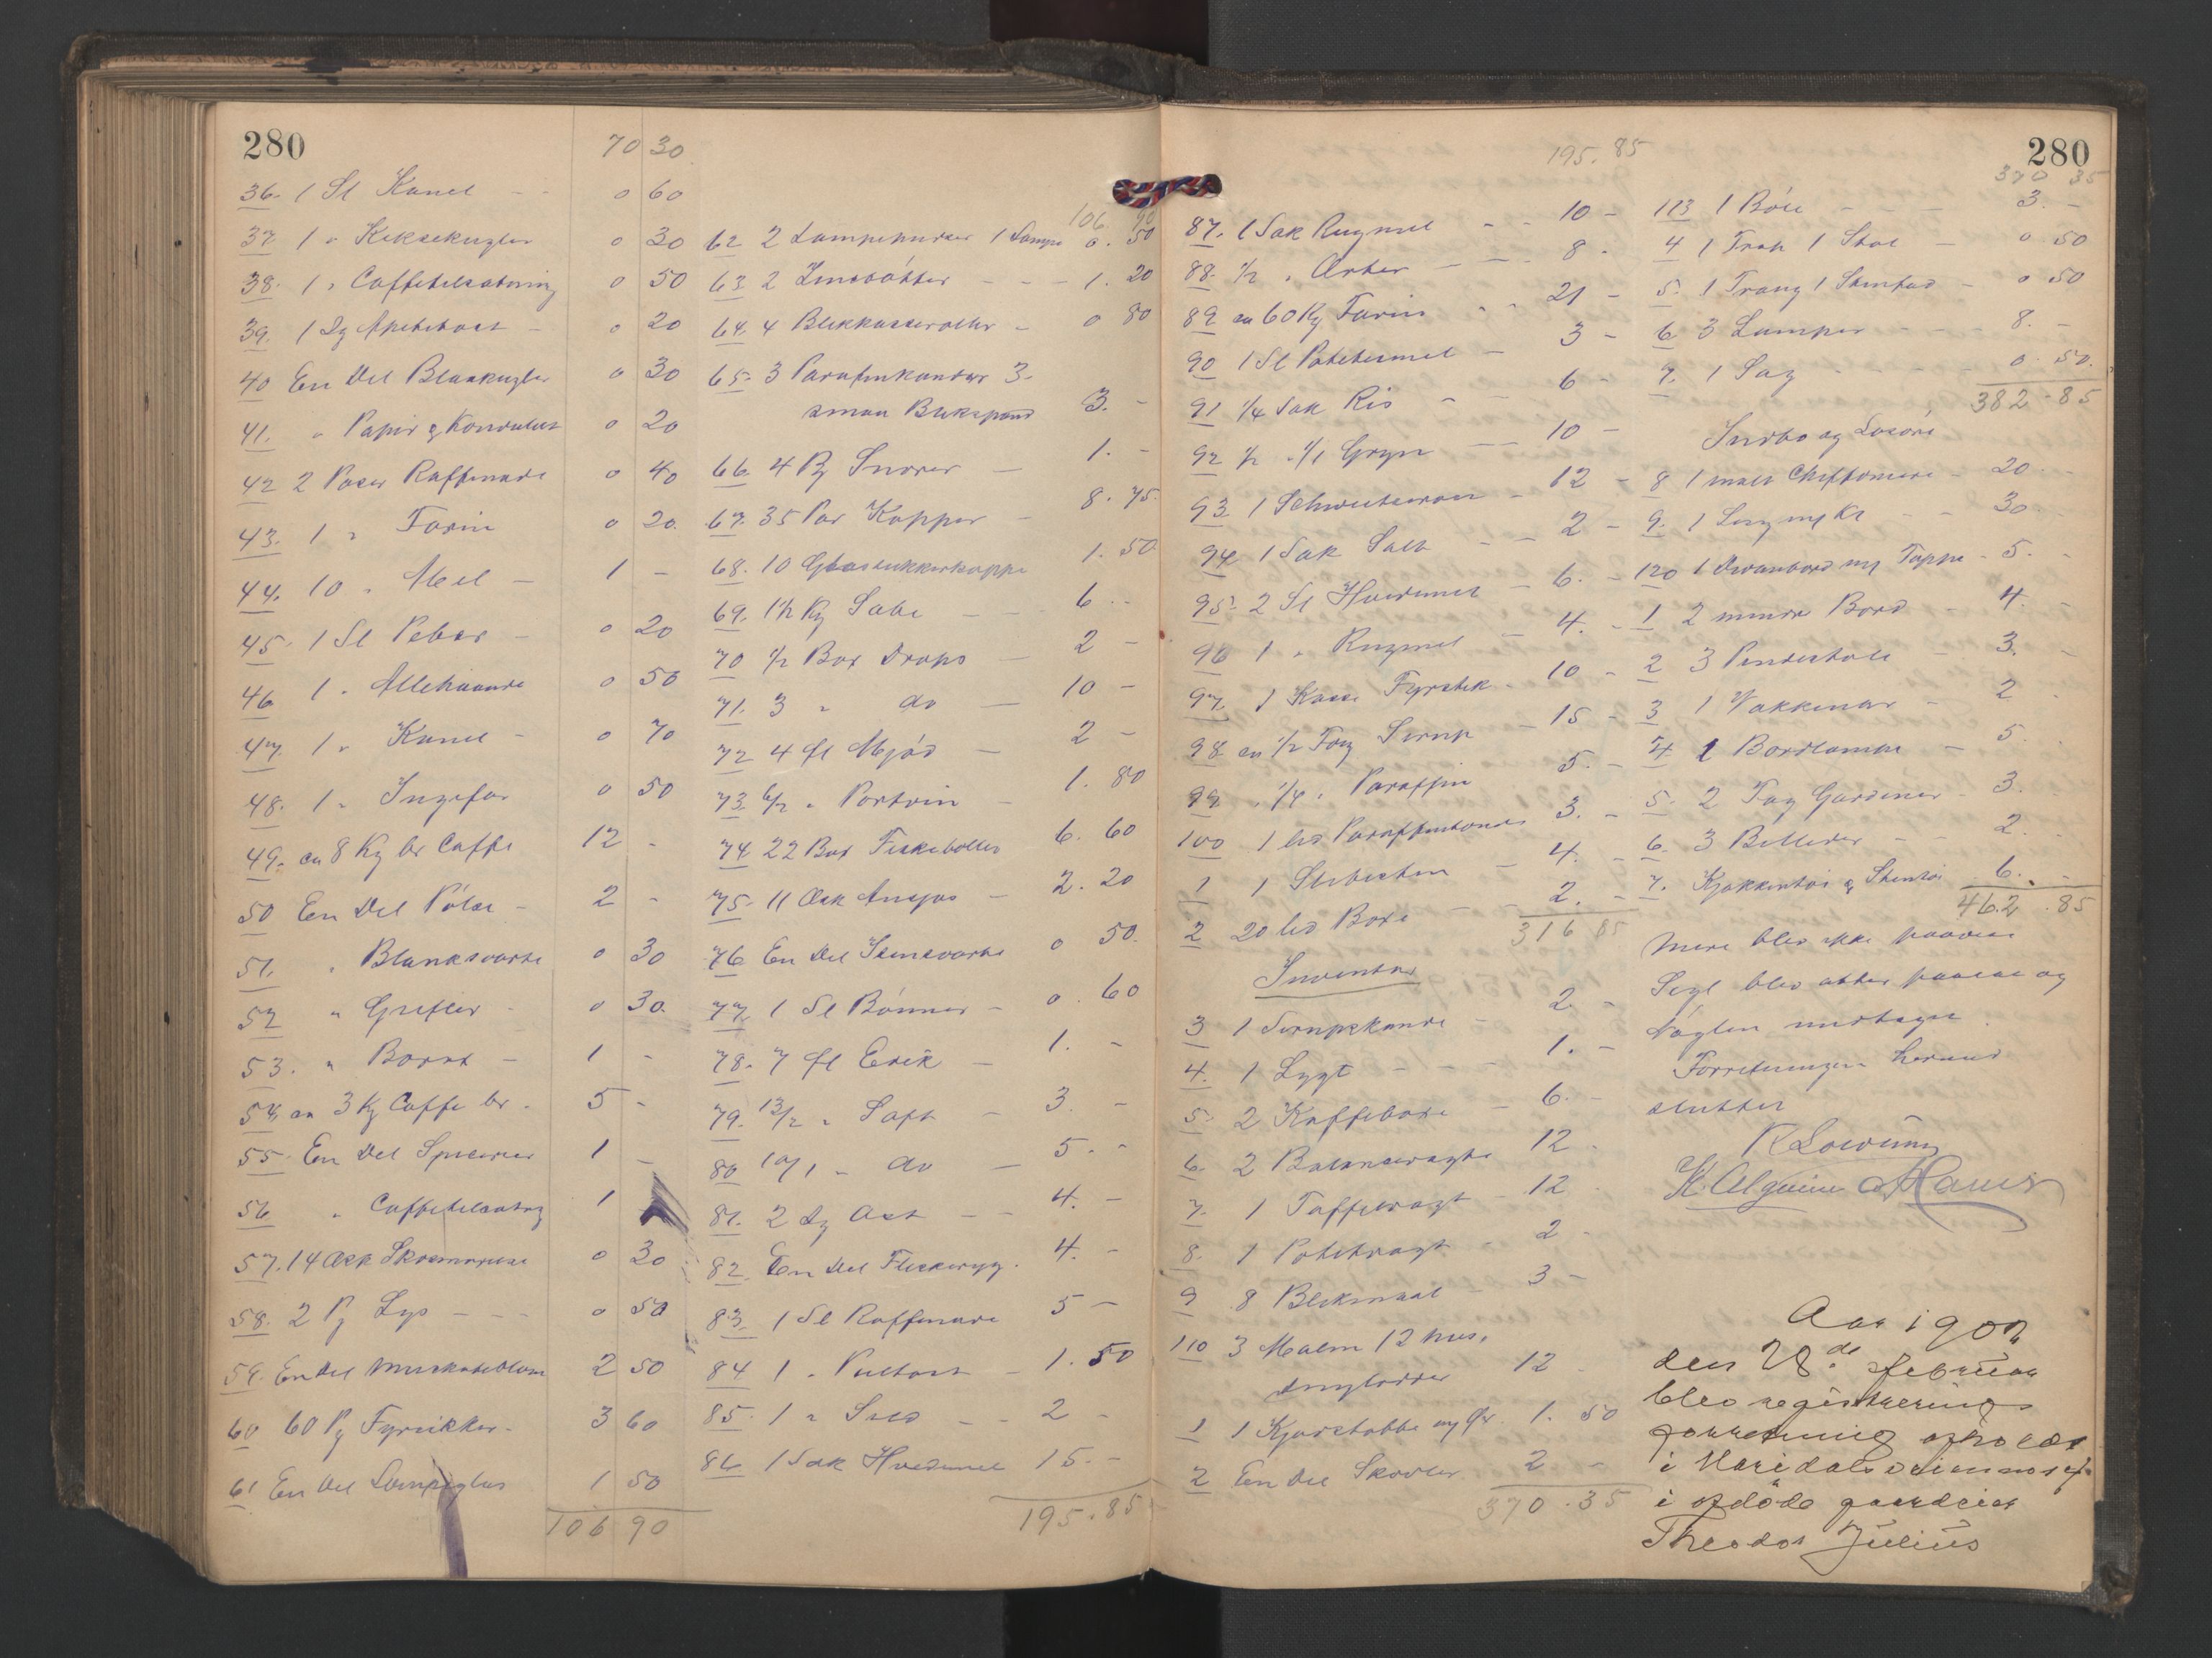 280
70 30
36. 1 Sl Kanel - - 0 60
37. 1 " Keksekugler 0 30
38. 1 " Caffetilsatning 0 50
39. 1 Dg Apetitost - 0 20
40 En Del Blaakugler 0 30
41. " Papir & Konvolut 0 20
42 2 Poser Raffinade 0 40
43. 1 " Farin 0 20.
44. 10 " Mel - 1 -
45. 1 Sl Peber - 0 20
46 1 " Allehaande 0 50
47. 1 " Kanel - 0 70
48. 1 " Ingefær 0 50
49. ca 8 Kg br Caffe 12 -
50 En Del Pölse - 2 -
51. " Blanksværte 0 30
52 " Grifler - 0 30.
53. " Børst - 1 -
54. ca 3 Kg Caffe br. 5 -
55. En Del Spicerier 1 -
56 " Caffetilsatng 1
57. 14 Æsk Skosmørelse 0 30
58. 2 Pg Lys - - - 0 50
59. En del Muskateblom 2 50
60 60 Pg Fyrstikker - 3 60
61 En Del Lampeglas 1 50
106 90
106. 90
62 2 Lampepudser 1 Lampe 0. 50
63. 2 - - - 1. 20
64. 4 Blikkasseroller - 0 80
65. 3 Parafinkander 3.
smaa Blikspand 3. -
66. 4 Pg Snører - 1. -
67. 35 Par Kopper - 8. 75.
68. 10 Glassukkerkopper 1. 50
69. 1½ Kg Sæbe - - 6 -
70 ½ Box Drops - 2 -
71. 3 " do - 10 -
72 4 fl Mjød - 2 -
73. 6/2 " Portvin - 1. 80
74. 22 Box Fiskeboller 6. 60
75. 11 Æsk Ansjos - 2. 20
76 En Del Skinsværte 0 50.
77. 1 Sl Bönner - 0. 60
78. 7 fl Edik - 1. -
79. 13/2 " Saft - 3. -
80 10/1 " do - 5. -
81. 2 Dg Ost - - 4. -
82. En Del Fleskeryg. 4. -
83. 1 Sl Raffinade 5 -
84 1 " Pultost - 1. 50
85. 1 " Sild - - 2 -
86 1 Sæk Hvedemel 15. -
195. 85
195. 85
87. 1 Sæk Rugmel - - 10 -
88. ½ " Ærter - - - 8 -
89 ca 60 Kg Farin - - 21 -
90 1 Sl Potetesmel - 3 -
91 ¼ Sæk Ris - - 6 -
92 ½ " Gryn - - 10 -
93. 1 Schweizerost - 12 -
94 1 Sæk Salt - - 2 -
95. 2 Sl Hvedemel - 6. -
96 1 " Rugmel - 4. -
97. 1 Kasse Fyrstik - 10 -
98 ca ½ Fag Sirup - 15 -
99. " ¼ " Paraffin 5. -
100 1 led Paraffintønde 3. -
1 1 Slibesten - 4. -
2 20 led Boxe - - 2. -
316 85
Inventar
3 1 Sirupskande - 2 -
4. 1 Lygt - - - 1. -
5. 2 Kaffebøse - 6. -
6. 2 Balancevægte 12 -
7. 1 Taffelvægt - 12
8. 1 Potetvægt - 2 -
9 8 Blikmaal - 3 -
110 3 Malm 12 hus.
12
1 1 Kjørstabbe og Øx. 1. 50
2 En Del Skovler 2 -
370. 35
280
370 35
113 1 Böie - - - 3. -
4 1 Trap 1 Stol - 0 50
5. 1 Traug 1 Stenfad - 0 50
6 3 Lamper - - - 8. -
7. 1 Sag - - - 0. 50.
382 - 85
Indbo og Løsöre
8 1 malt Chiffoniere - 20 -
9. 1 Seng mg Kl - - 30 -
120 1 Divanbord mg Teppe - 5. -
1 2 mindre Bord - 4. -
2 3 Pindestole - 3. -
3 1 Vækkeuhr - 2 -
4 1 Bordlampe - 5. -
5. 2 Fag Gardiner - 3. -
6. 3 Billeder - - 2. -
7. Kjøkkentöi & Stentöi 6. -
462. 85
Mere blev ikke paavist
Segl blev atter paasat og
Nöglen medtaget.
Forretningen hermed
sluttet
R Løevüng
K. Algaien A Hansen
Aar 1902
den 28de februar
blev registrerings
forretning afholdt
i Maridalsveien no 14
i afdöde gaardeier
Theodor Julius